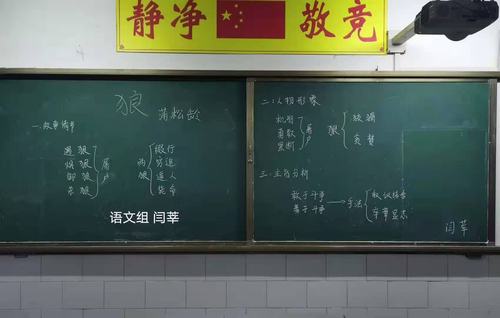 静净 敬竞
狼
蒲松龄
一、故事情节
遇狼
惧狼
御狼
杀狼
屠户
两狼
缀行
穷追
逼人
丧命
语文组 闫莘
二、人物形象
机智
勇敢
果断
屠户
狼
狡猾
贪婪
三、主旨分析
敢于斗争
善于斗争
手法
闫莘